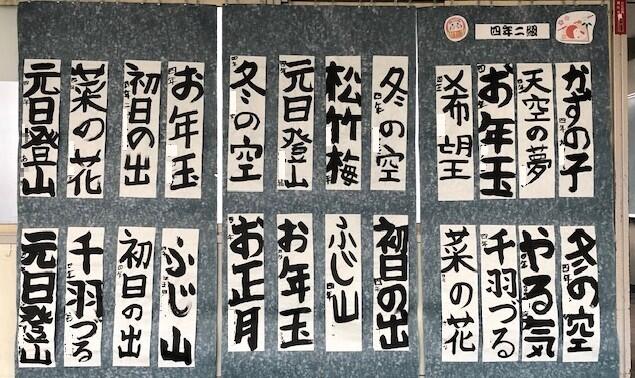 四年二組
かずの子
天空の夢
お年玉
希望
冬の空
やる気
千羽づる
菜の花
冬の空
松竹梅
元日登山
冬の空
初日の出
ふじ山
お年玉
お正月
お年玉
初日の出
菜の花
元日登山
ふじ山
初日の出
千羽づる
元日登山